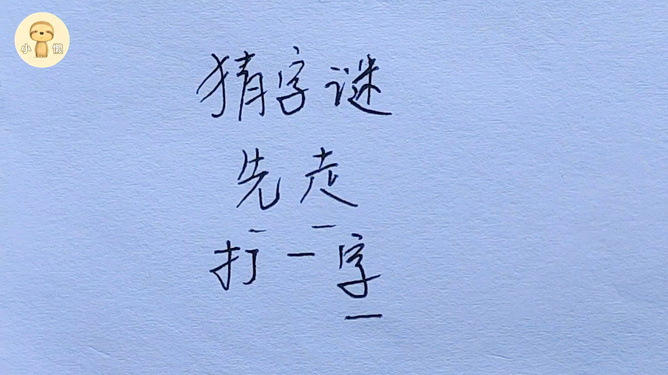 小懒
猜字谜
先走
打一字